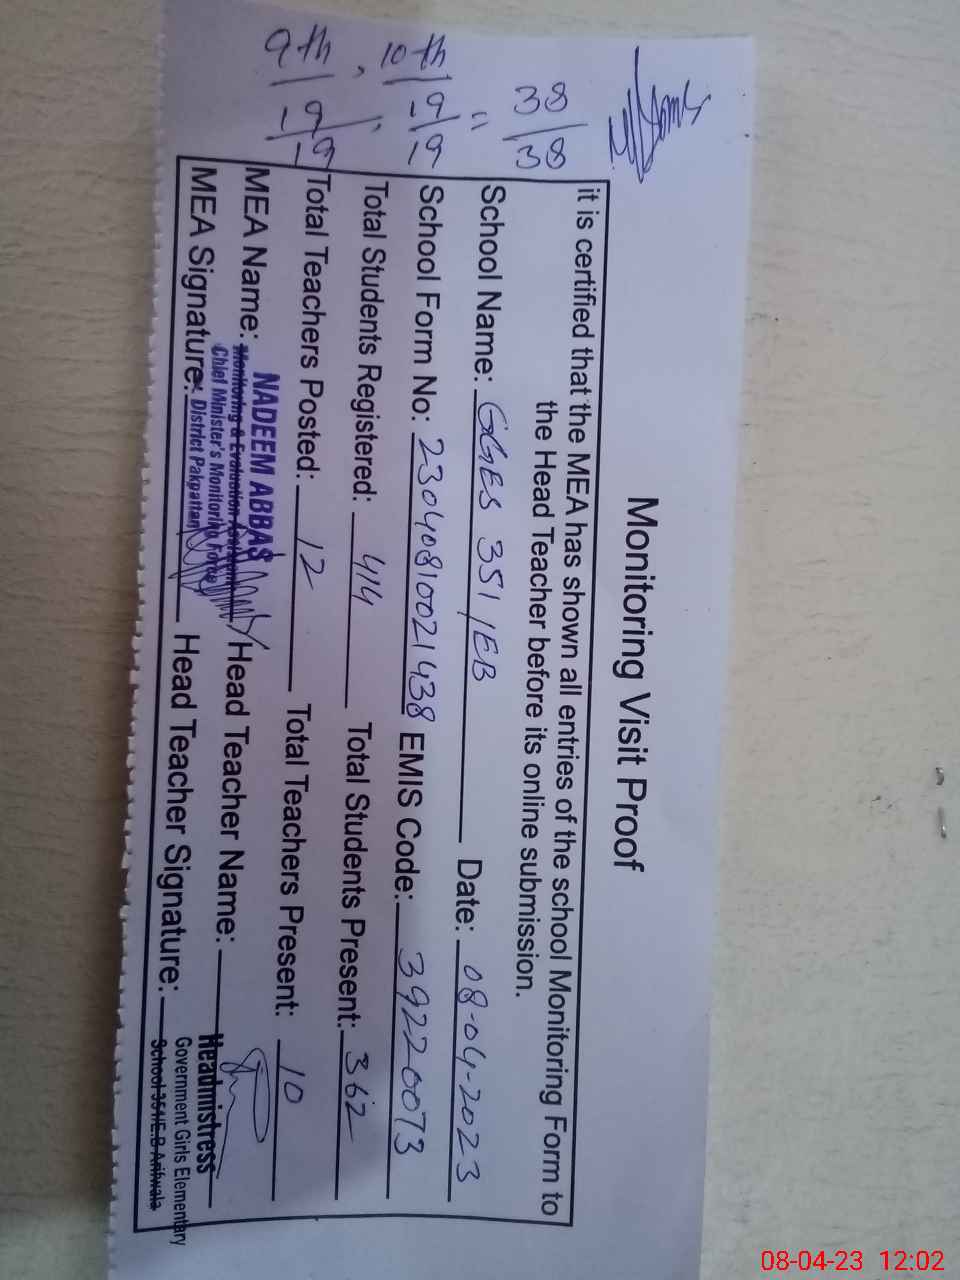 9th, 10th
-9/-9, -9/-9 = 38/38
Monitoring Visit Proof
it is certified that the MEA has shown all entries of the school Monitoring Form to
the Head Teacher before its online submission.
School Name: GGES 351/EB Date: 08-04-2023
School Form No: 23040810021438 EMIS Code: 39220073
Total Students Registered: 414 Total Students Present: 362
Total Teachers Posted: 12 Total Teachers Present: 10
MEA Name: NADEEM ABBAS Head Teacher Name:
Monitoring & Evaluation
Chief Minister's Monitoring Force
MEA Signature: District Pakpattan Head Teacher Signature:
Headmistress
Government Girls Elementary
School 351/E.B Arifwala
08-04-23 12:02